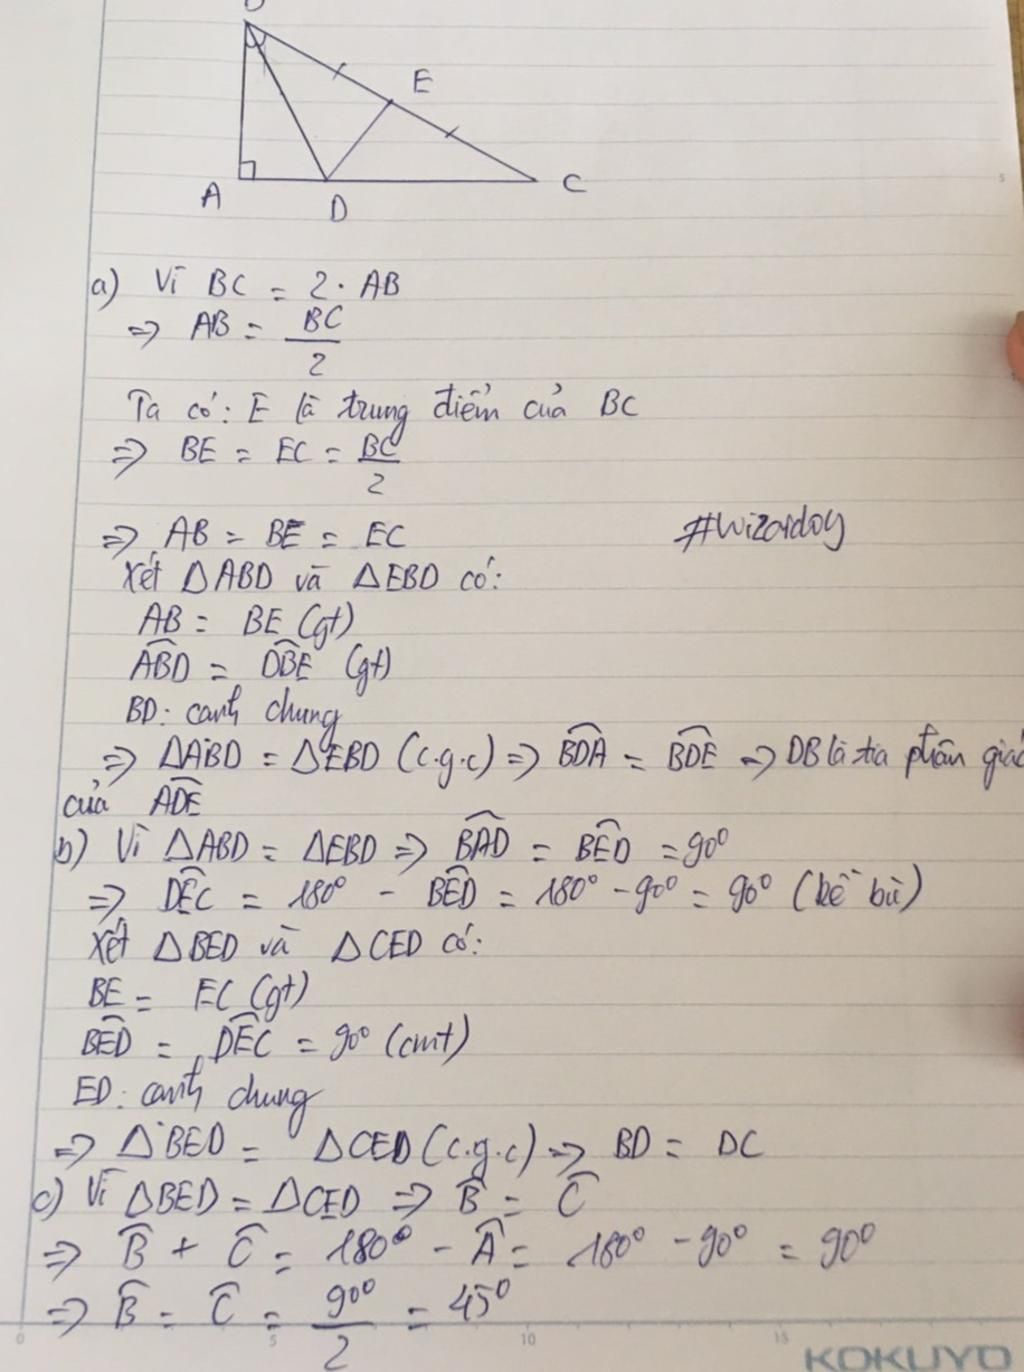 E
A
D
C
5
a) Vì BC = 2 . AB
=> AB = BC/2
Ta có: E là trung điểm của BC
=> BE = EC = BC/2
=> AB = BE = EC
#wizardoy
Xét ΔABD và ΔEBD có:
AB = BE (gt)
\widehat{ABD} = \widehat{DBE} (gt)
BD: cạnh chung
=> ΔABD = ΔEBD (c.g.c) => \widehat{BDA} = \widehat{BDE} => DB là tia phân giác
của \widehat{ADE}
b) Vì ΔABD = ΔEBD => \widehat{BAD} = \widehat{BED} = 90°
=> \widehat{DEC} = 180° - \widehat{BED} = 180° - 90° = 90° (kề bù)
Xét ΔBED và ΔCED có:
BE = EC (gt)
\widehat{BED} = \widehat{DEC} = 90° (cmt)
ED: cạnh chung
=> ΔBED = ΔCED (c.g.c) => BD = DC
c) Vì ΔBED = ΔCED => \widehat{B} = \widehat{C}
=> \widehat{B} + \widehat{C} = 180° - \widehat{A} = 180° - 90° = 90°
=> \widehat{B} = \widehat{C} = 90°/2 = 45°
0 5 10 15
KOKUYO